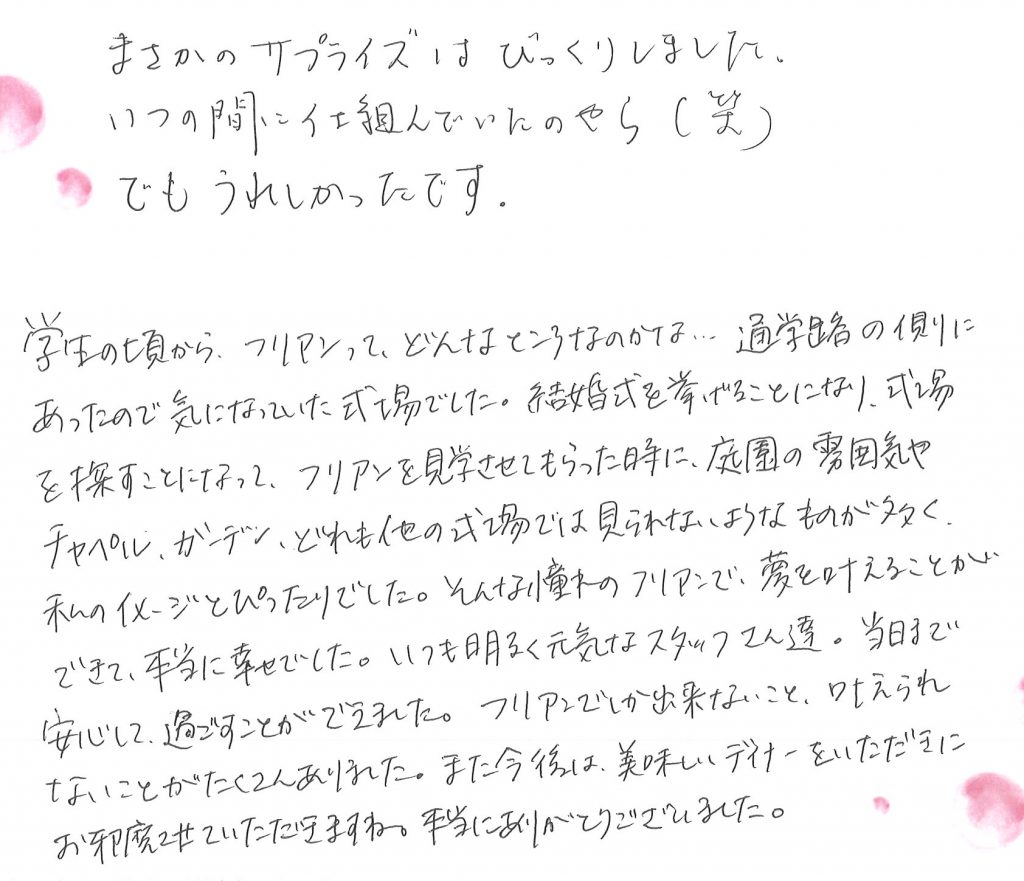 まさかのサプライズはびっくりしました、
いつの間に仕組んでいたのやら(笑)
でもうれしかったです.
学生の頃から、フリアンって、どんなところなのかな…通学路の側に
あったので気になっていた式場でした。結婚式を挙げることになり、式場
を探すことになって、フリアンを見学させてもらった時に、庭園の雰囲気や
チャペル、ガーデン、どれも他の式場では見られないようなものが多く、
私のイメージとぴったりでした。そんな憧れのフリアンで、夢を叶えることが
できて、本当に幸せでした。いつも明るく元気なスタッフさん達。当日まで
安心して、過ごすことができました。フリアンでしか出来ないこと、叶えられ
ないことがたくさんありました。また今後は、美味しいディナーをいただきに
お邪魔させていただきますね。本当にありがとうございました。